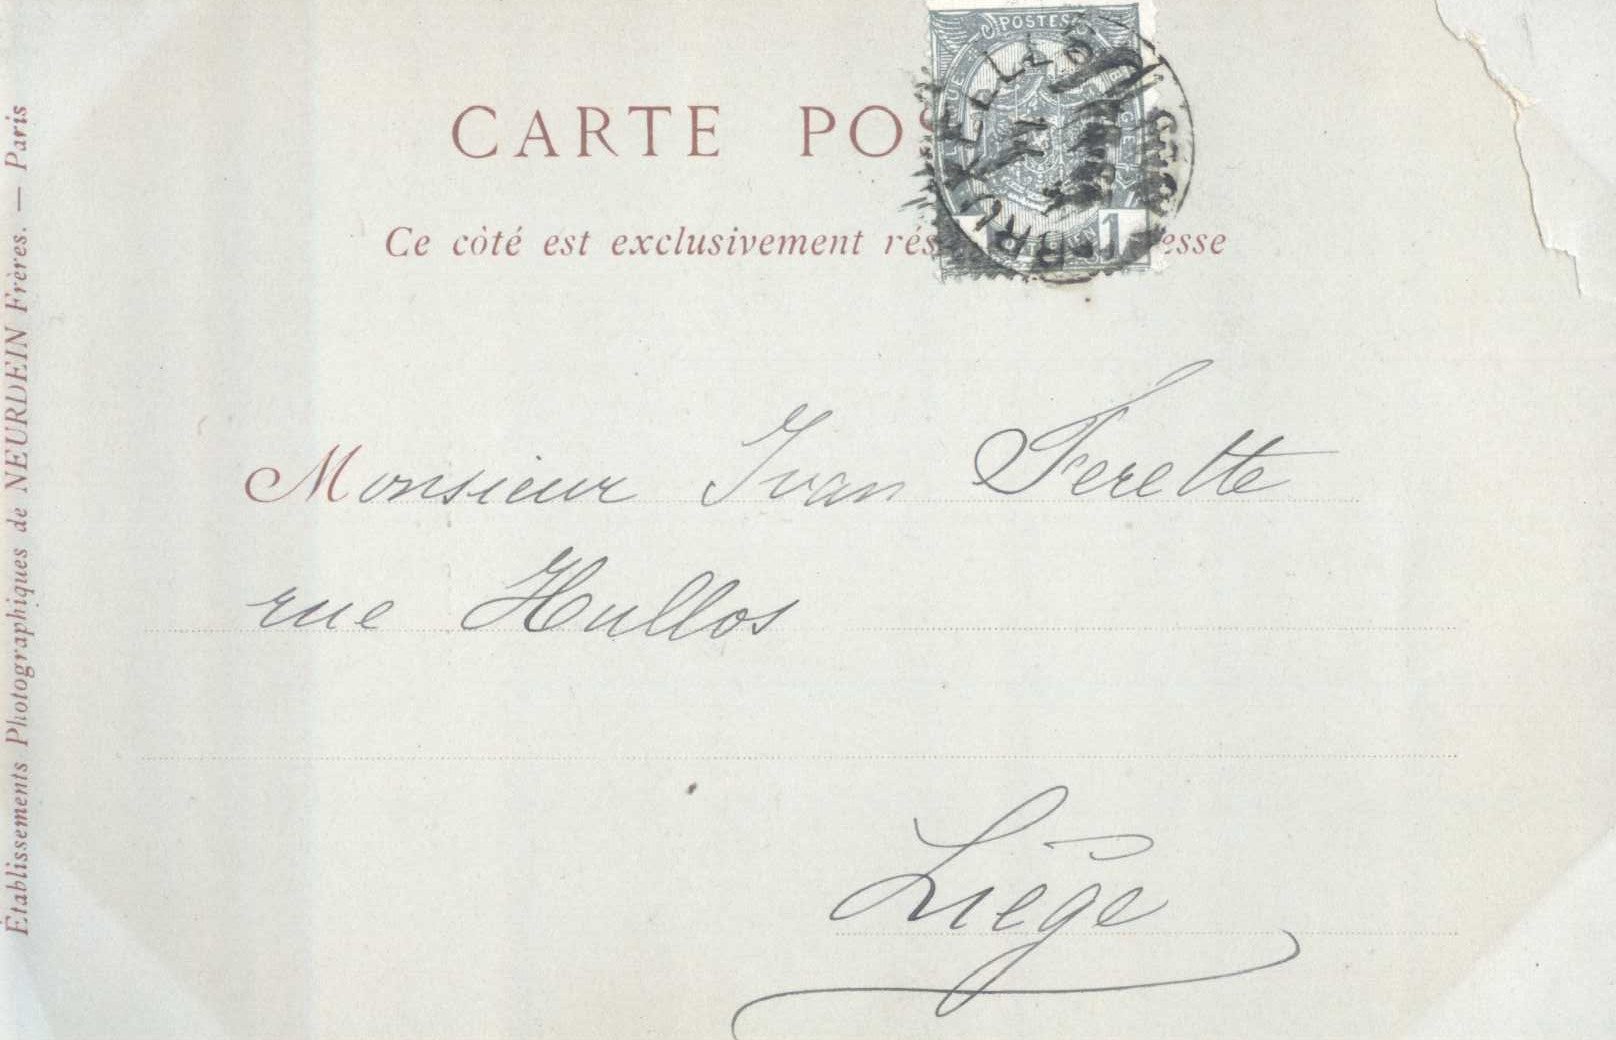 CARTE POS
Ce côté est exclusivement rés esse
POSTES
BRUXELLES
11
1
Monsieur Ivan Ferette
rue Hullos
Liége
Établissements Photographiques de NEURDEIN Frères. — Paris